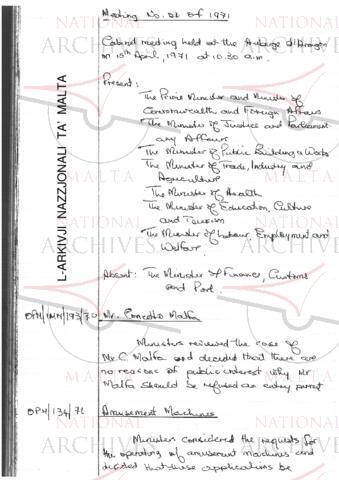 Meeting No. 21 of 1971
Cabinet meeting held at the Auberge d'Aragon
on 15th April, 1971 at 10.30 a.m.
Present:
The Prime Minister and Minister of
Commonwealth and Foreign Affairs
The Minister of Justice and Parliament
ary Affairs
The Minister of Public Building & Works
The Minister of Trade, Industry and
Agriculture
The Minister of Health
The Minister of Education, Culture
and Tourism
The Minister of Labour, Employment and
Welfare.
Absent: The Minister of Finance, Customs
and Port.
OPM/IMM/193/70 Mr. Concetto Malfa
Ministers reviewed the case of
Mr. C. Malfa and decided that there are
no reasons of public interest why Mr
Malfa should be refused an entry permit
OPM/134/71 Amusement Machines
Ministers considered the requests for
the operating of amusement machines and
decided that these applications be
L-ARKIVJI NAZZJONALI TA' MALTA
NATIONAL
ARCHIVES
MALTA